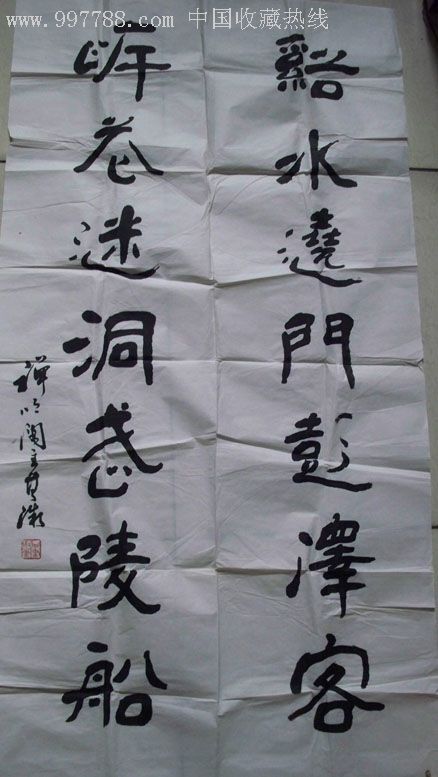 www.997788.com 中国收藏热线
谿水遶門彭澤客
岸花迷洞武陵船
禅 阁主